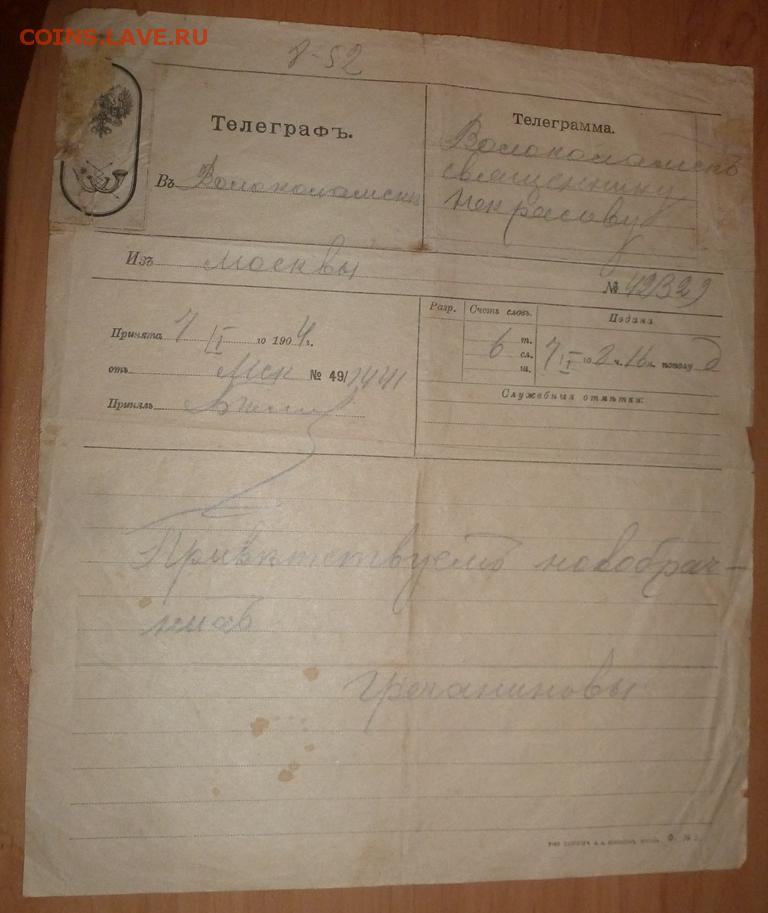 COINS.LAVE.RU
8-52
Телеграфъ.
Въ Волоколамскъ
Телеграмма.
Волоколамскъ
священнику
Некрасову
Изъ Москвы
№ 42329
Принята 7 I го 1904 г.
отъ Мск № 49/
Принялъ
Разр.
Счетъ словъ.
6
т.
сл.
ш.
Подана
7 I го 2 ч. 16 м. полу д
Служебныя отмѣтки:
Привѣтствуемъ новобрач-
ныхъ
Гречаниновы
Ф. №